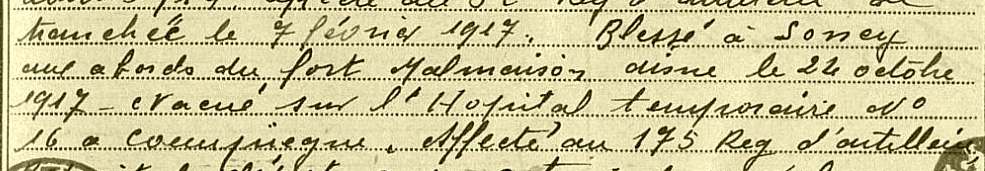 Reg d'artillerie de
tranchée le 7 février 1917. Blessé à Soncy
aux abords du fort Malmaison aisne le 24 octobre
1917 - evacué sur l'Hopital temporaire No
16 a Compiegne. Affecté au 175 Reg d'artillerie